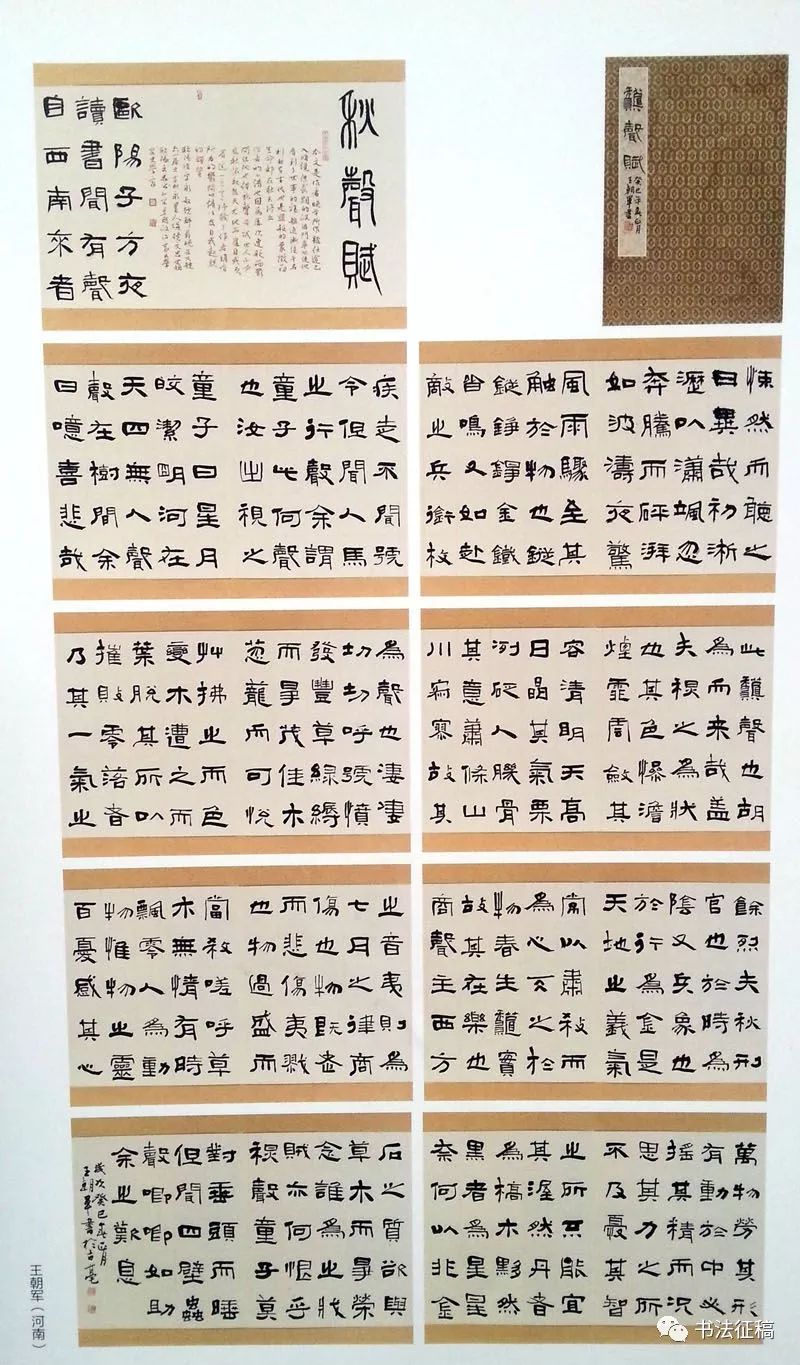 龝聲賦
癸巳年春正月
王朝軍書
秋聲賦
歐陽子方夜
讀書聞有聲
自西南來者
悚然而聽之
曰異哉初淅
瀝以瀟颯忽
奔騰而砰湃
如波濤夜驚
風雨驟至其
觸於物也鏦
鏦錚錚金鐵
皆鳴又如赴
敵之兵銜枚
疾走不聞號
令但聞人馬
之行聲余謂
童子此何聲
也汝出視之
童子曰星月
皎潔明河在
天四無人聲
聲在樹間余
曰噫喜悲哉
此龝聲也胡
為而来哉盖
夫秋之為狀
也其色慘澹
煙霏雲斂其
容清明天高
日晶其氣栗
冽砭人肌骨
其意蕭條山
川寂寥故其
為聲也淒淒
切切呼號憤
發豐草綠縟
而爭茂佳木
蔥蘢而可悅
艸拂之而色
變木遭之而
葉脫其所以
摧敗零落者
乃其一氣之
餘烈夫秋刑
官也於時為
陰又兵象也
於行為金是
天地之義氣
常以肅殺而
為心天之於
物春生龝實
故其在樂也
商聲主西方
之音夷則為
七月之律商
傷也物既老
而悲傷夷戮
也物過盛而
當殺嗟呼草
木無情有時
飄零人為動
物惟物之靈
百憂感其心
萬物勞其形
有動於中必
搖其精而況
思其力之所
不及憂其智
之所不能宜
其渥然丹者
為槁木黟然
黑者為星星
奈何以非金
石之質欲與
草木而爭榮
念誰為之戕
賊亦何恨乎
秋聲童子莫
對垂頭而睡
但聞四壁蟲
聲唧唧如助
余之歎息
歲次癸巳春正月
王朝軍書於古亳
王朝军（河南）
书法征稿